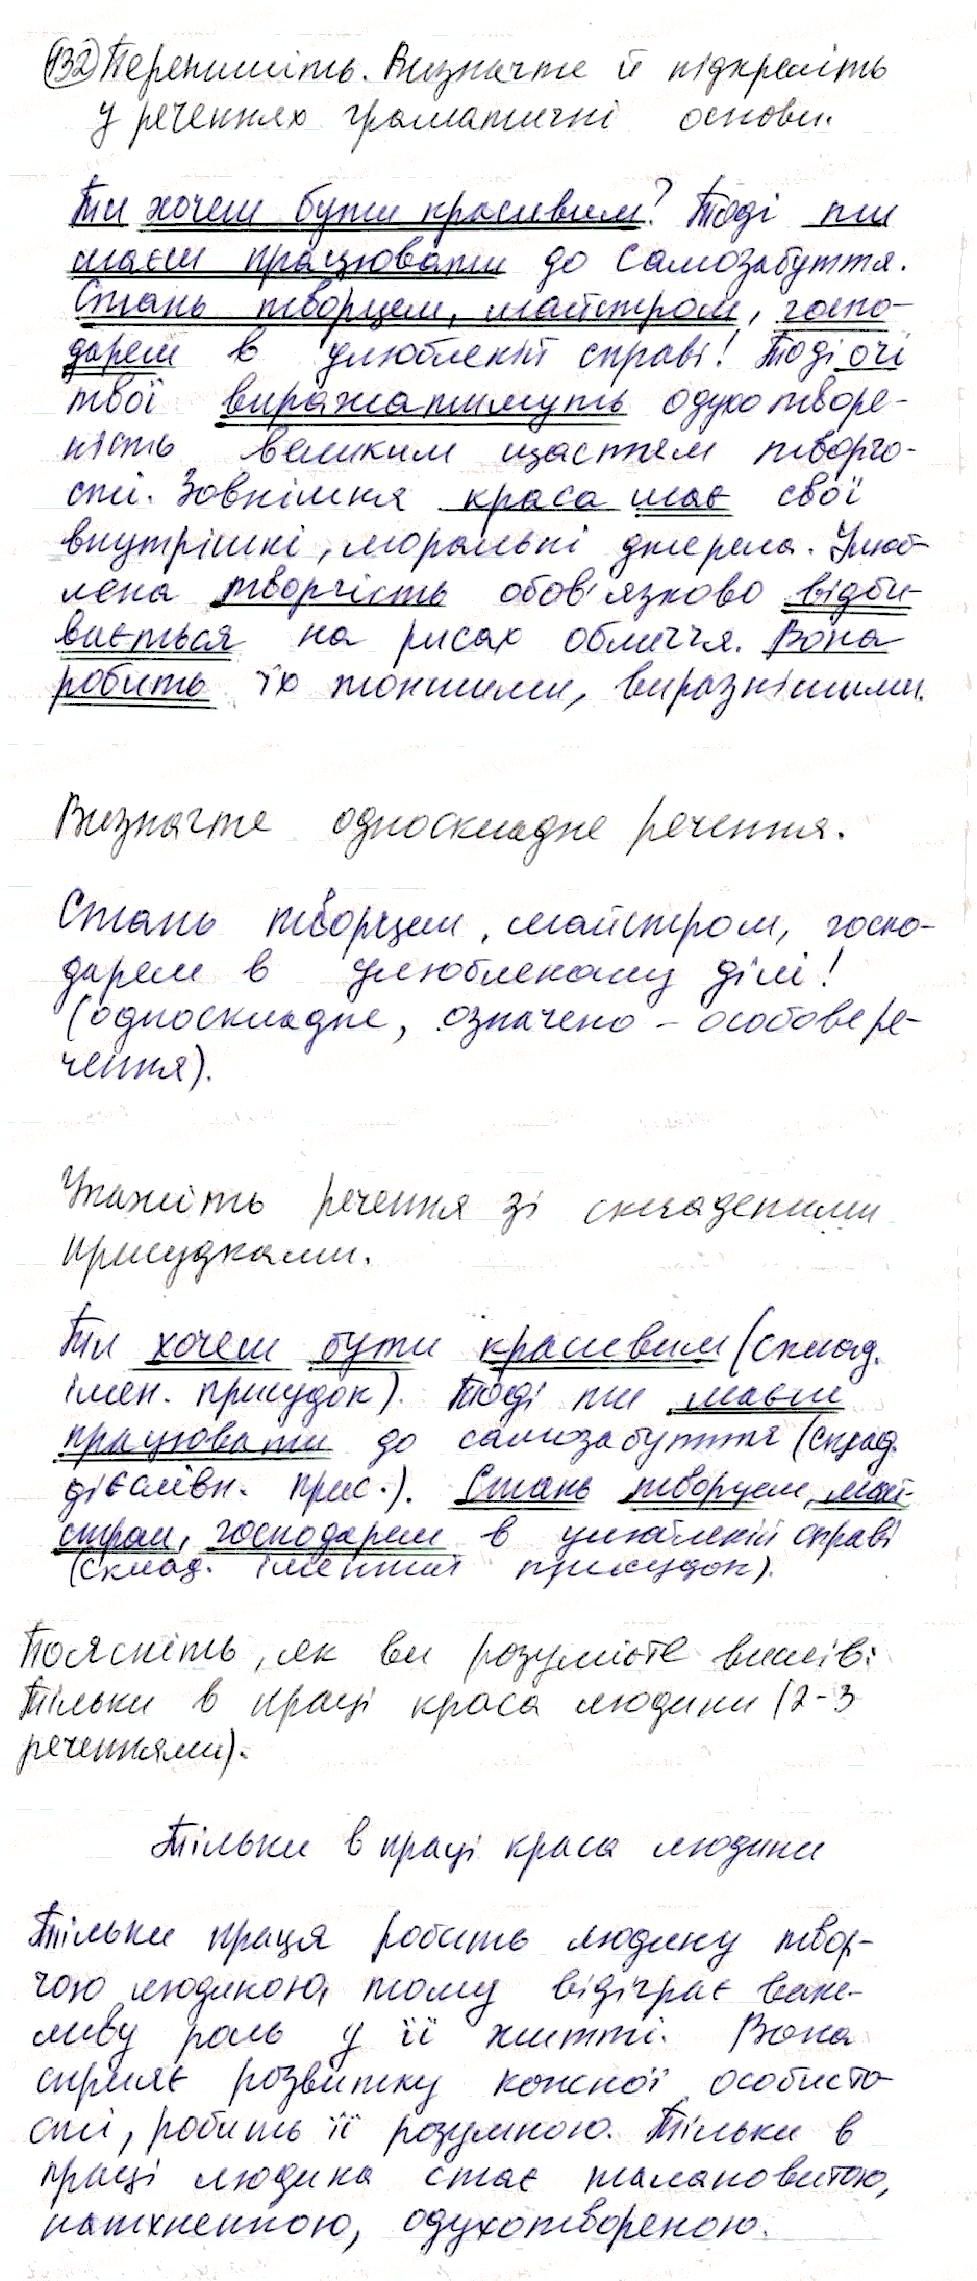 132 Перепишіть. Визначте й підкресліть
у реченнях граматичні основи.
Ти хочеш бути красивим? Тоді ти
маєш працювати до самозабуття.
Стань творцем, майстром, госпо-
дарем в улюбленій справі! Тоді очі
твої виражатимуть одухотворе-
ність великим щастям творчо-
сті. Зовнішня краса має свої
внутрішні, моральні джерела. Улюб-
лена творчість обов'язково відби-
вається на рисах обличчя. Вона
робить їх тоншими, виразнішими.
Визначте односкладне речення.
Стань творцем, майстром, госпо-
дарем в улюбленому ділі!
(односкладне, означено-особове ре-
чення).
Укажіть речення зі складеними
присудками.
Ти хочеш бути красивим (склад.
імен. присудок). Тоді ти маєш
працювати до самозабуття (склад.
дієслівн. прис.). Стань творцем, май-
стром, господарем в улюбленій справі
(склад. іменний присудок).
Поясніть, як ви розумієте вислів:
Тільки в праці краса людини (2-3
реченнями).
Тільки в праці краса людини
Тільки праця робить людину твор-
чою людиною, тому відіграє важ-
ливу роль у її житті. Вона
сприяє розвитку кожної особисто-
сті, робить її розумною. Тільки в
праці людина стає талановитою,
натхненною, одухотвореною.